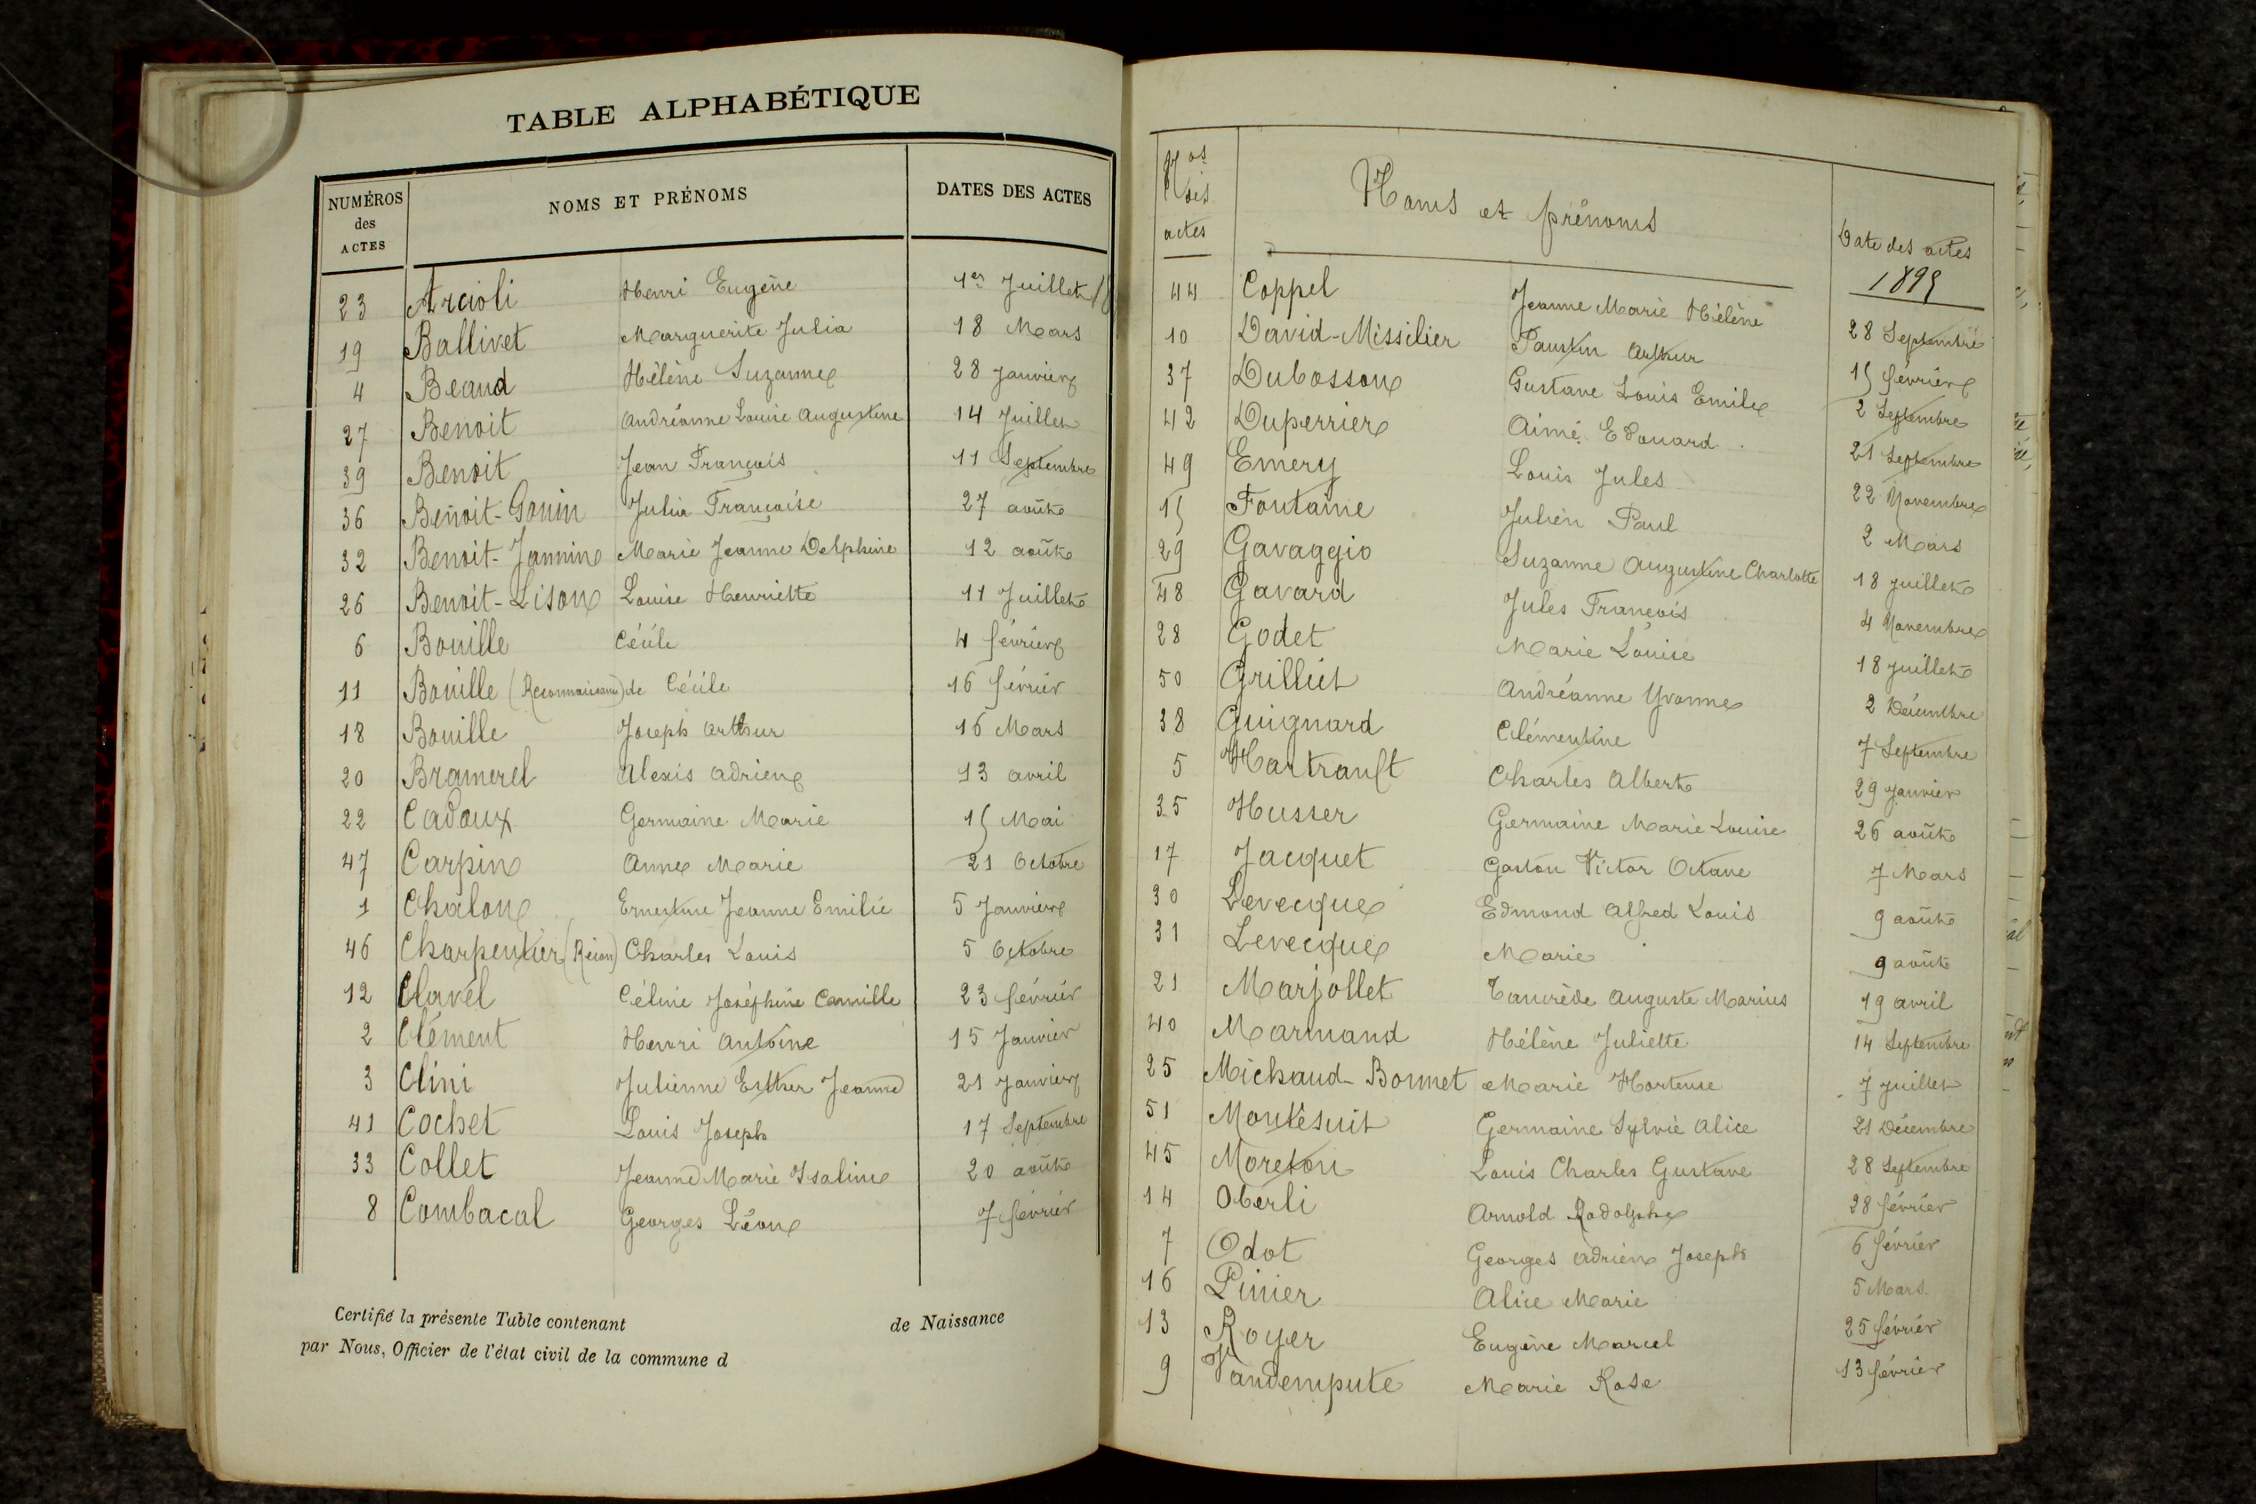 TABLE ALPHABÉTIQUE
NUMÉROS des ACTES NOMS ET PRÉNOMS DATES DES ACTES
23 Arcioli Henri Eugène 1er Juillet
19 Ballivet Marguerite Julia 18 Mars
4 Beaud Hélène Suzanne 28 Janvier
27 Benoit Andréanne Louise Augustine 14 Juillet
39 Benoit Jean François 11 Septembre
36 Benoit-Gonin Julia Françoise 27 août
32 Benoit-Jannin Marie Jeanne Delphine 12 août
26 Benoit-Lison Louise Henriette 11 Juillet
6 Bouille Cécile 4 février
11 Bouille (Reconnaissance) de Cécile 16 février
18 Bouille Joseph Arthur 16 Mars
20 Bramerel Alexis Adrien 13 avril
22 Cadoux Germaine Marie 15 Mai
47 Carpin Anne Marie 21 Octobre
1 Chalon Ernestine Jeanne Emilie 5 Janvier
46 Charpentier (Recon) Charles Louis 5 Octobre
12 Clavel Céline Joséphine Camille 23 février
2 Clément Henri Antoine 15 Janvier
3 Clini Julienne Esther Jeanne 21 Janvier
41 Cochet Louis Joseph 17 Septembre
33 Collet Jeanne Marie Isaline 20 août
8 Combacal Georges Léon 7 février
Certifié la présente Table contenant de Naissance
par Nous, Officier de l'état civil de la commune d
Nos des actes Noms et prénoms Date des actes
1895
44 Coppel Jeanne Marie Hélène 28 Septembre
10 David-Missilier Faustin Arthur 15 février
37 Dubosson Gustave Louis Emile 2 Septembre
42 Duperrier Aimé Edouard 21 Septembre
49 Emery Louis Jules 22 Novembre
15 Fontaine Julien Paul 2 Mars
29 Gavaggio Suzanne Augustine Charlotte 18 juillet
48 Gavard Jules François 4 Novembre
28 Godet Marie Louise 18 juillet
50 Grilliet Andréanne Yvonne 2 Décembre
38 Guignard Clémentine 7 Septembre
5 Hartranft Charles Albert 29 Janvier
35 Husser Germaine Marie Louise 26 août
17 Jacquet Gaston Victor Octave 7 Mars
30 Levecque Edmond Alfred Louis 9 août
31 Levecque Marie 9 août
21 Marjollet Tancrède Auguste Marius 19 avril
40 Marmand Hélène Juliette 14 Septembre
25 Michaud-Bonnet Marie Hortense 7 juillet
51 Montésuit Germaine Sylvie Alice 21 Décembre
45 Moreton Louis Charles Gustave 28 Septembre
14 Oberli Arnold Rodolphe 28 février
7 Odot Georges Adrien Joseph 6 février
16 Pinier Alice Marie 5 Mars
13 Royer Eugène Marcel 25 février
9 Vandempute Marie Rose 13 février